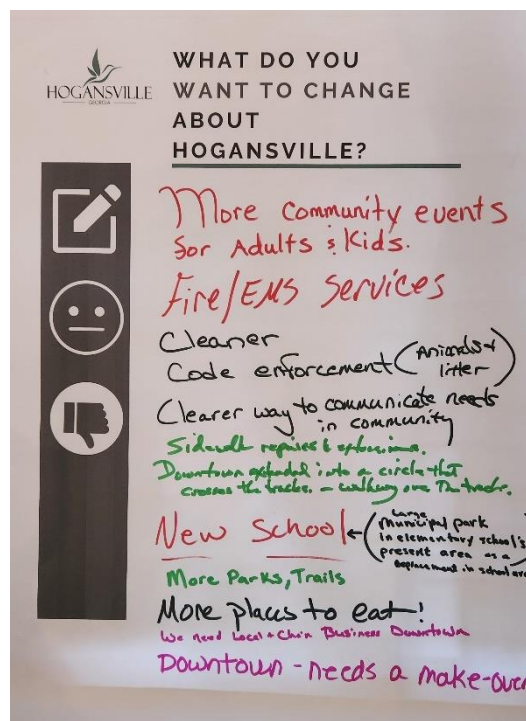 HOGANSVILLE
GEORGIA
WHAT DO YOU
WANT TO CHANGE
ABOUT
HOGANSVILLE?
More Community events
for Adults & Kids.
Fire/EMS Services
Cleaner
Code enforcement (Animals +
litter)
Clearer way to communicate needs
in community
Sidewalk repairs & extensions.
Downtown extended into a circle that
crosses the tracks. - walking over the tracks.
New School ← (Large
municipal park
in elementary school's
present area as a
replacement in school area
More Parks, Trails
More places to eat!
We need Local + Chain Business Downtown
Downtown - needs a make-over